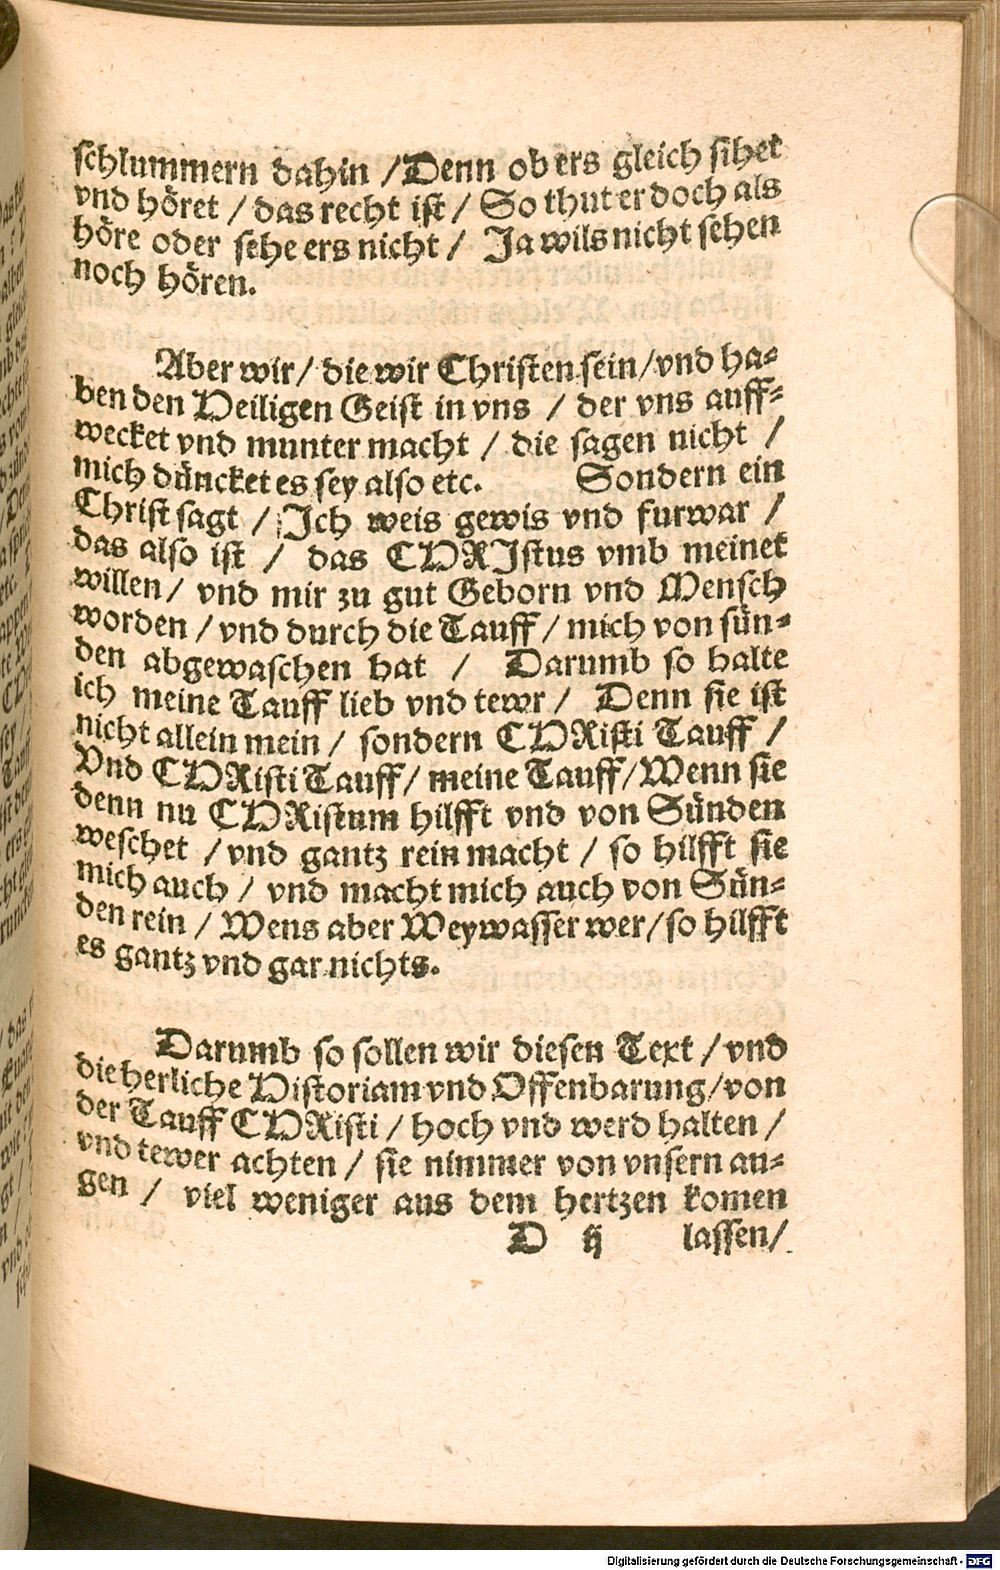 schlummern dahin / Denn ob ers gleich sihet
vnd höret / das recht ist / So thut er doch als
höre oder sehe ers nicht / Ja wils nicht sehen
noch hören.
Aber wir / die wir Christen sein / vnd ha-
ben den Heiligen Geist in vns / der vns auff-
wecket vnd munter macht / die sagen nicht /
mich düncket es sey also etc. Sondern ein
Christ sagt / Ich weis gewis vnd furwar /
das also ist / das CHRIstus vmb meinet
willen / vnd mir zu gut Geborn vnd Mensch
worden / vnd durch die Tauff / mich von sün-
den abgewaschen hat / Darumb so halte
ich meine Tauff lieb vnd tewr / Denn sie ist
nicht allein mein / sondern CHRisti Tauff /
Vnd CHRisti Tauff / meine Tauff / Wenn sie
denn nu CHRistum hilfft vnd von Sünden
weschet / vnd gantz rein macht / so hilfft sie
mich auch / vnd macht mich auch von Sün-
den rein / Wens aber Weywasser wer / so hilfft
es gantz vnd gar nichts.
Darumb so sollen wir diesen Text / vnd
die herliche Historiam vnd Offenbarung / von
der Tauff CHRisti / hoch vnd werd halten /
vnd tewer achten / sie nimmer von vnsern au-
gen / viel weniger aus dem hertzen komen
D ij lassen /
Digitalisierung gefördert durch die Deutsche Forschungsgemeinschaft - DFG